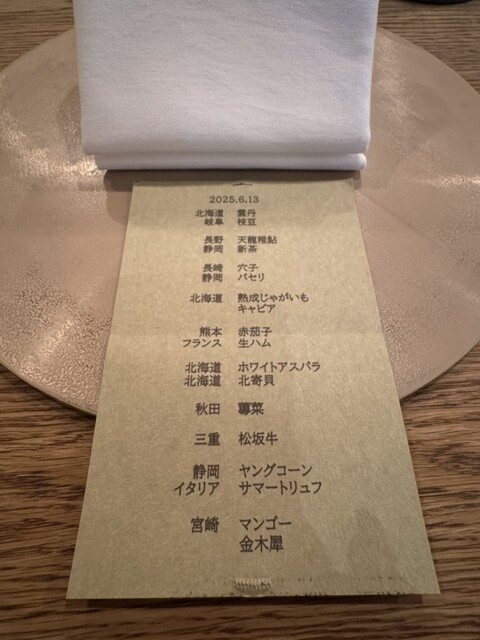 2025.6.13
北海道 雲丹
岐阜 枝豆
長野 天龍稚鮎
静岡 新茶
長崎 穴子
静岡 パセリ
北海道 熟成じゃがいも
キャビア
熊本 赤茄子
フランス 生ハム
北海道 ホワイトアスパラ
北海道 北寄貝
秋田 蓴菜
三重 松坂牛
静岡 ヤングコーン
イタリア サマートリュフ
宮崎 マンゴー
金木犀